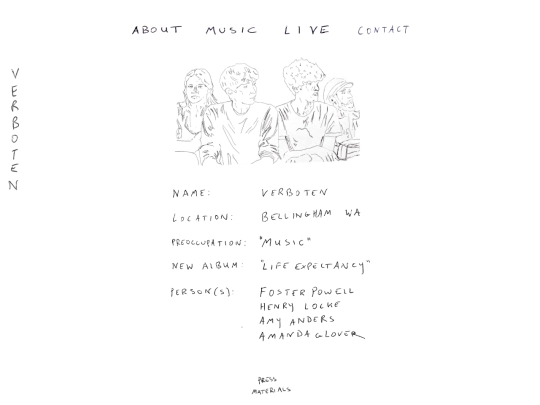 ABOUT MUSIC LIVE CONTACT
VERBOTEN
NAME: VERBOTEN
LOCATION: BELLINGHAM WA
PREOCCUPATION: "MUSIC"
NEW ALBUM: "LIFE EXPECTANCY"
PERSON(S): FOSTER POWELL
HENRY LOCKE
AMY ANDERS
AMANDA GLOVER
PRESS
MATERIALS